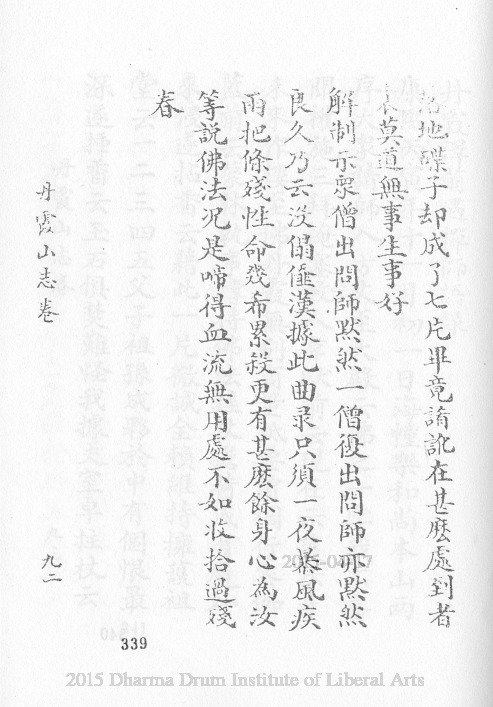 地磉子却成了七片畢竟誵訛在甚麽處到者
莫道無事生事好
解制示眾僧出問師默然一僧復出問師亦默然
良久乃云汝傝㒎漢據此曲录只須一夜暴風疾
雨把條殘性命幾希累殺更有甚麽餘身心為汝
等説佛法況是啼得血流無用處不如收拾過殘
春
丹霞山志卷
九二
339
2015 Dharma Drum Institute of Liberal Arts